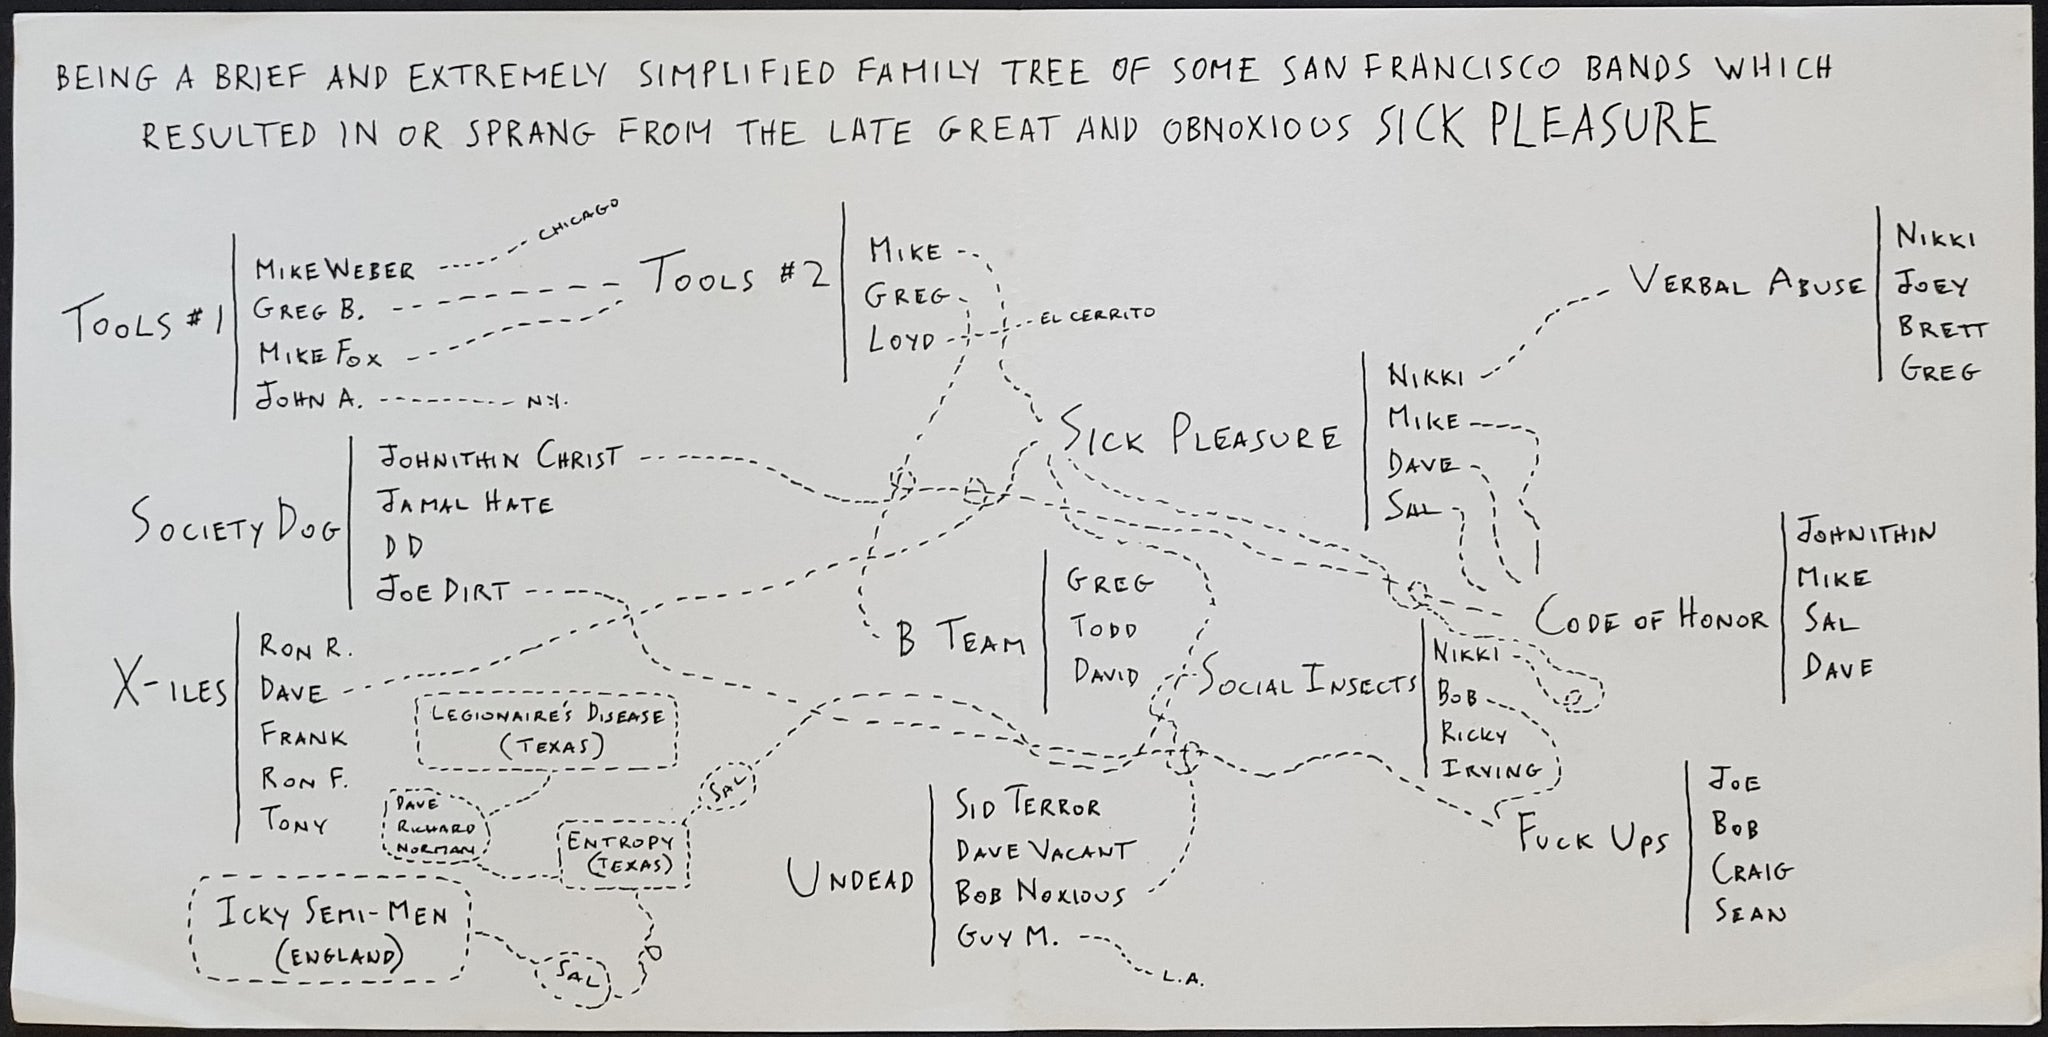 BEING A BRIEF AND EXTREMELY SIMPLIFIED FAMILY TREE OF SOME SAN FRANCISCO BANDS WHICH
RESULTED IN OR SPRANG FROM THE LATE GREAT AND OBNOXIOUS SICK PLEASURE
TOOLS #1
MIKE WEBER
CHICAGO
GREG B.
MIKE FOX
JOHN A.
N.Y.
TOOLS #2
MIKE
GREG
LOYD
EL CERRITO
VERBAL ABUSE
NIKKI
JOEY
BRETT
GREG
SICK PLEASURE
NIKKI
MIKE
DAVE
SAL
SOCIETY DOG
JOHNITHIN CHRIST
JAMAL HATE
DD
JOE DIRT
CODE OF HONOR
JOHNITHIN
MIKE
SAL
DAVE
B TEAM
GREG
TODD
DAVID
SOCIAL INSECTS
NIKKI
BOB
RICKY
IRVING
X-ILES
RON R.
DAVE
FRANK
RON F.
TONY
LEGIONAIRE'S DISEASE
(TEXAS)
DAVE
RICHARD
NORMAN
SAL
ENTROPY
(TEXAS)
ICKY SEMI-MEN
(ENGLAND)
SAL
UNDEAD
SID TERROR
DAVE VACANT
BOB NOXIOUS
GUY M.
L.A.
FUCK UPS
JOE
BOB
CRAIG
SEAN